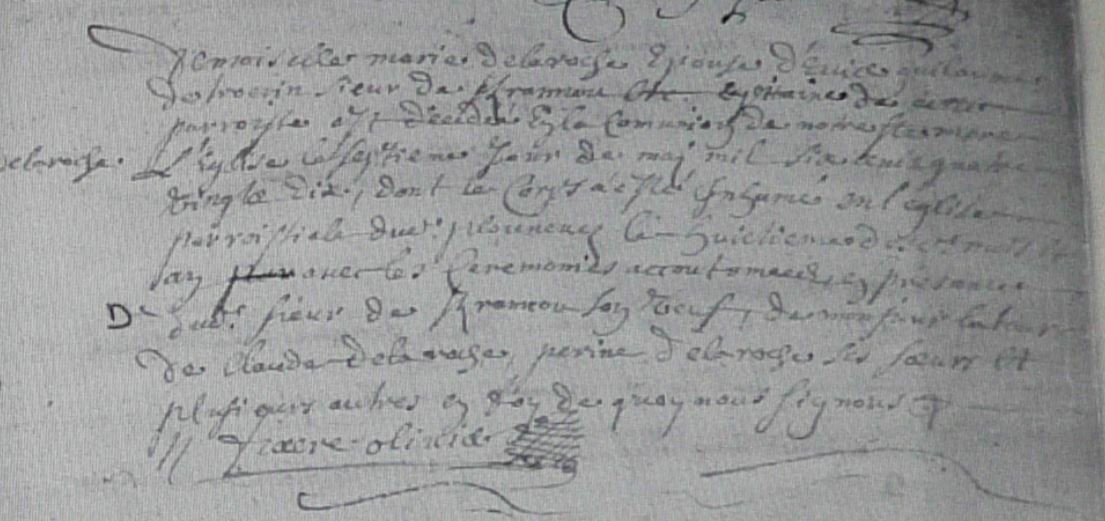 Demoiselle marie delaroche Epouse d'Escuier guillaume
sieur de Kramou capitaine de
parroisse est decedée En la Communion de notre ste mere
delaroche. L'Eglise le septieme Jour de maj mil six cents quatre
vingts dix, dont le Corps a esté Inhumé en l'eglise
parroissiale dudt plouneuez le huictieme dudt mois et
an avec les Ceremonies accoutumees, en presence
D dudt sieur de Kramou son veuf, de monsieur
de Claude delaroche, perine delaroche ses soeurs et
plusieurs autres en foy de quoy nous signons
olivier